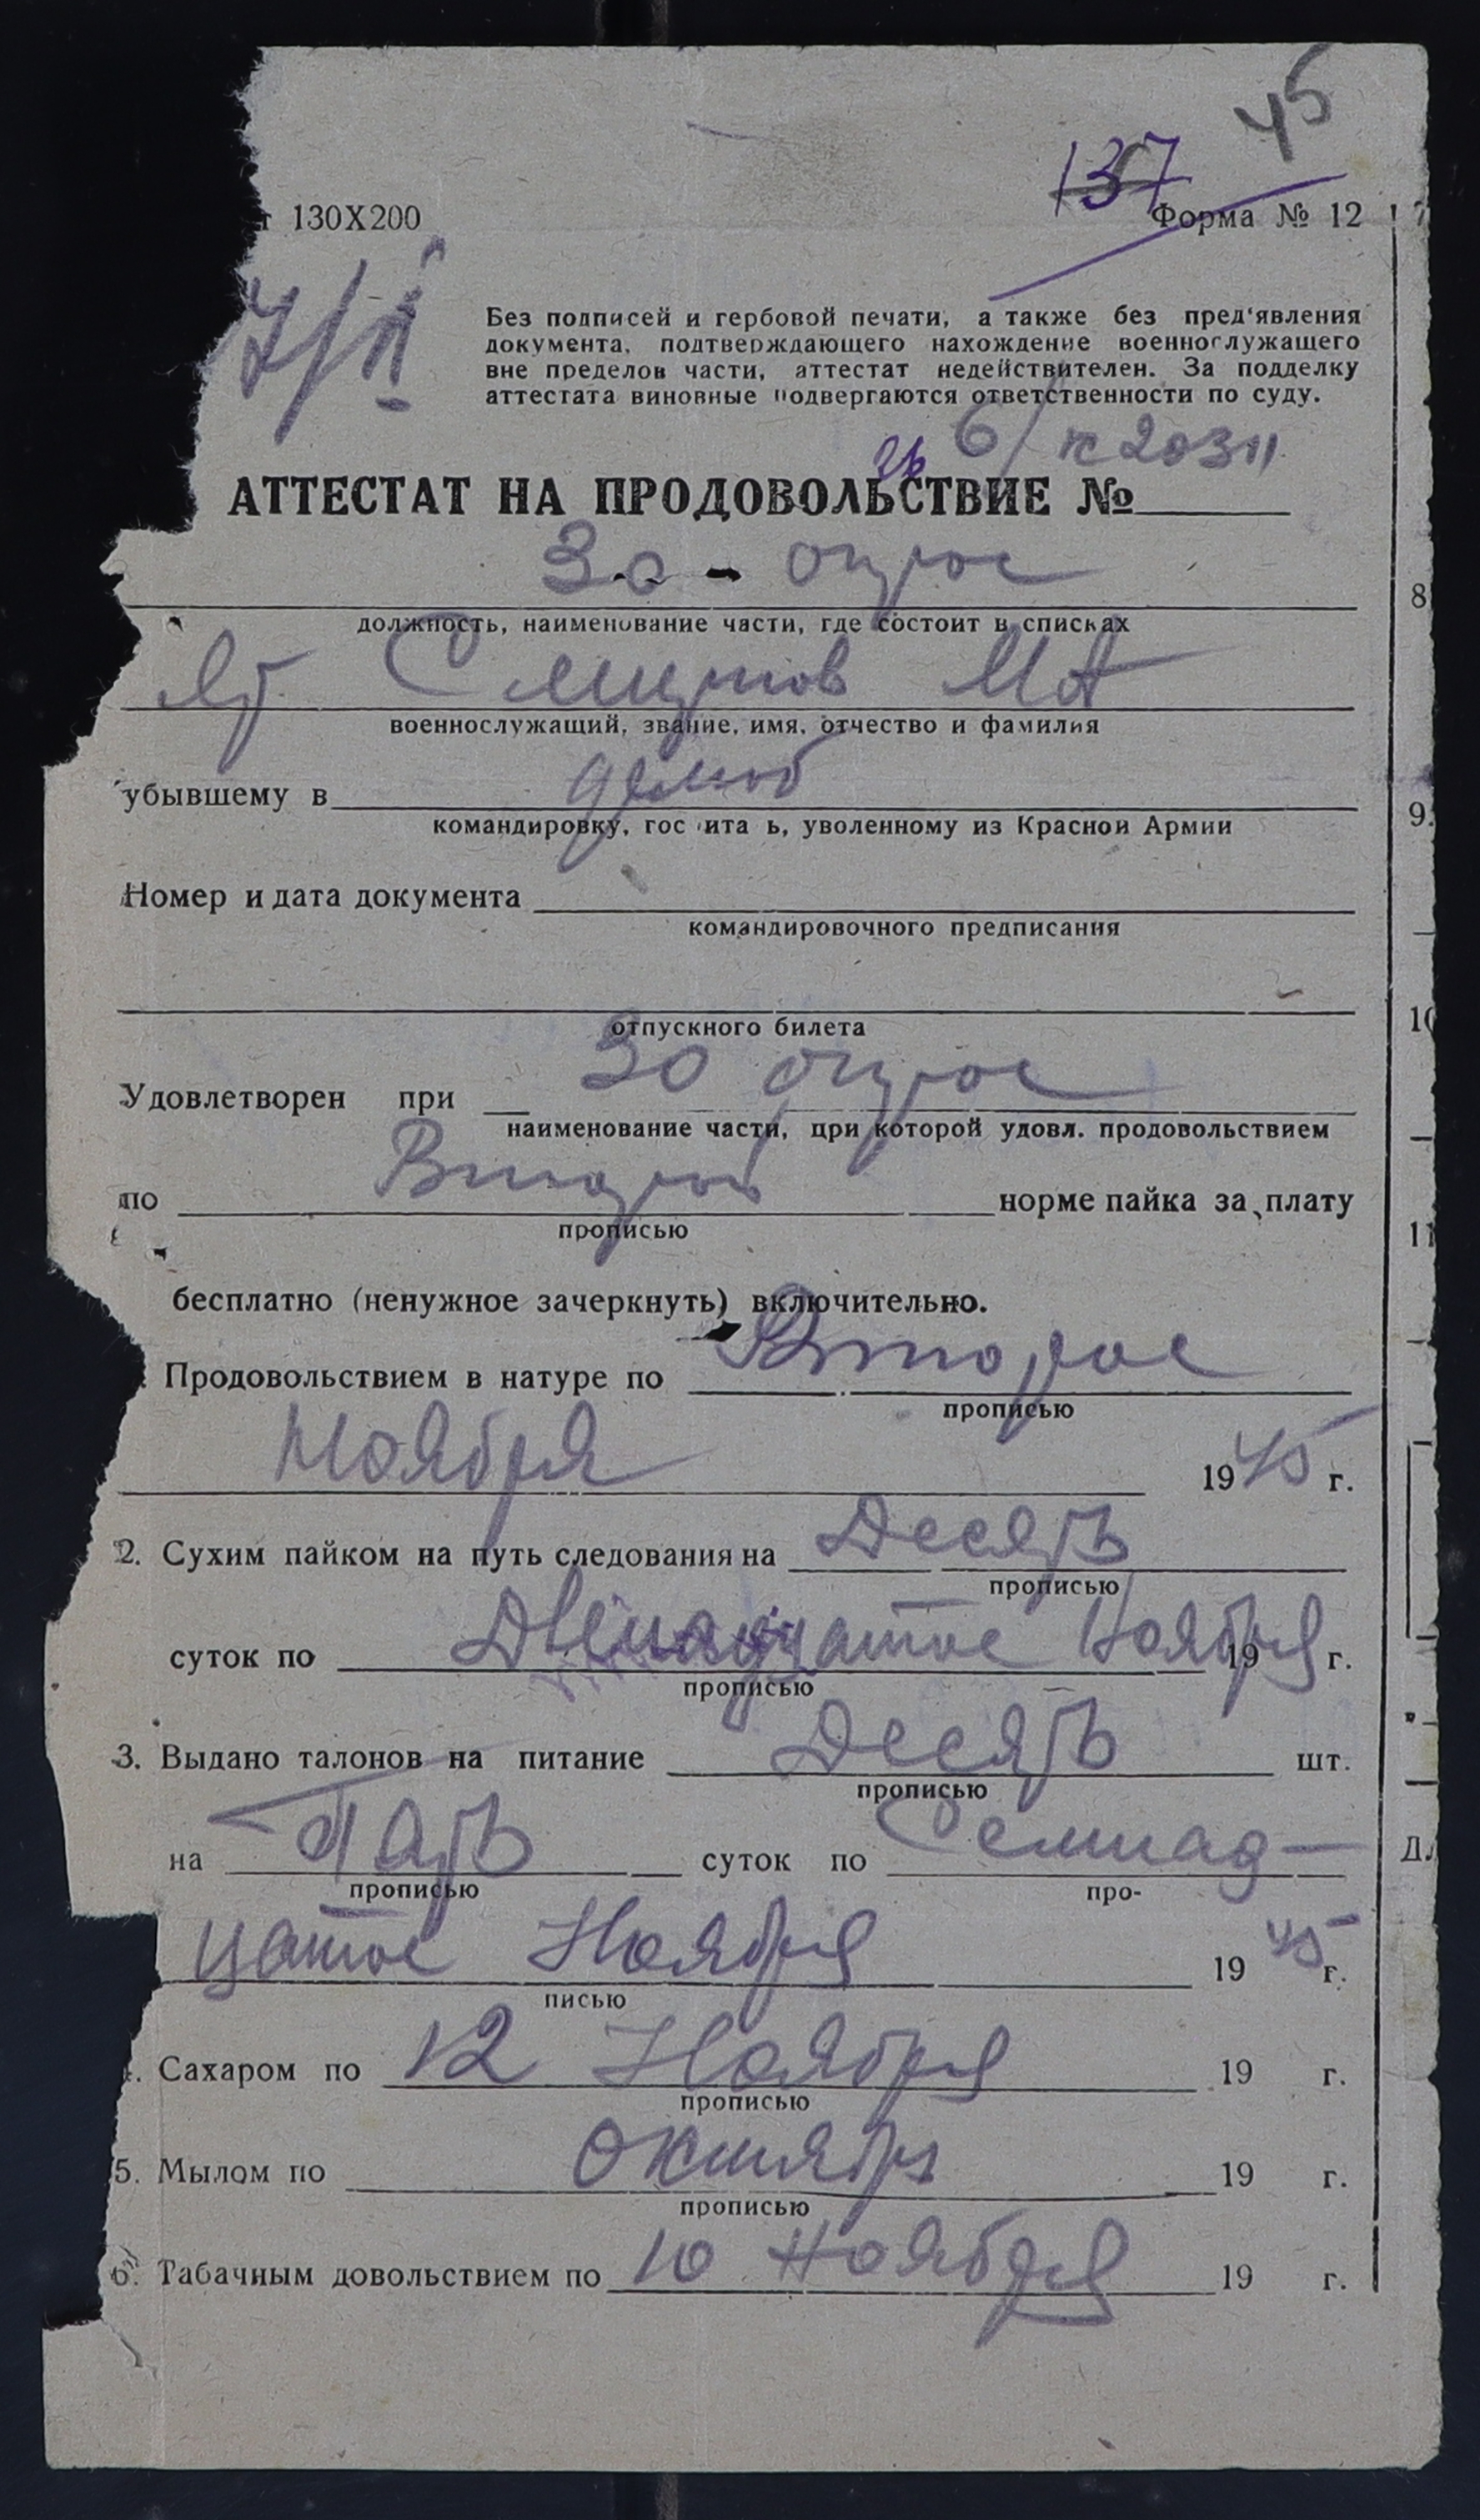 45
137
т 130Х200
Форма № 12
Без подписей и гербовой печати, а также без пред'явления
документа, подтверждающего нахождение военнослужащего
вне пределов части, аттестат недействителен. За подделку
аттестата виновные подвергаются ответственности по суду.
АТТЕСТАТ НА ПРОДОВОЛЬСТВИЕ №
30 -
должность, наименование части, где состоит в списках
Смирнов МА
военнослужащий, звание, имя, отчество и фамилия
убывшему в демоб
командировку, гос ита ь, уволенному из Красной Армии
Номер и дата документа
командировочного предписания
отпускного билета
Удовлетворен при 30
наименование части, при которой удовл. продовольствием
по Второй норме пайка за плату
прописью
бесплатно (ненужное зачеркнуть) включительно.
Продовольствием в натуре по Второе
прописью
Ноября 1945 г.
2. Сухим пайком на путь следования на Десять
прописью
суток по Двенадцатое Ноября 19 г.
прописью
3. Выдано талонов на питание Десять шт.
прописью
на Пять суток по Семнад-
прописью про-
цатое Ноября 1945 г.
писью
. Сахаром по 12 Ноября 19 г.
прописью
5. Мылом по Октябрь 19 г.
прописью
6. Табачным довольствием по 10 Ноября 19 г.
8
9.
10
11